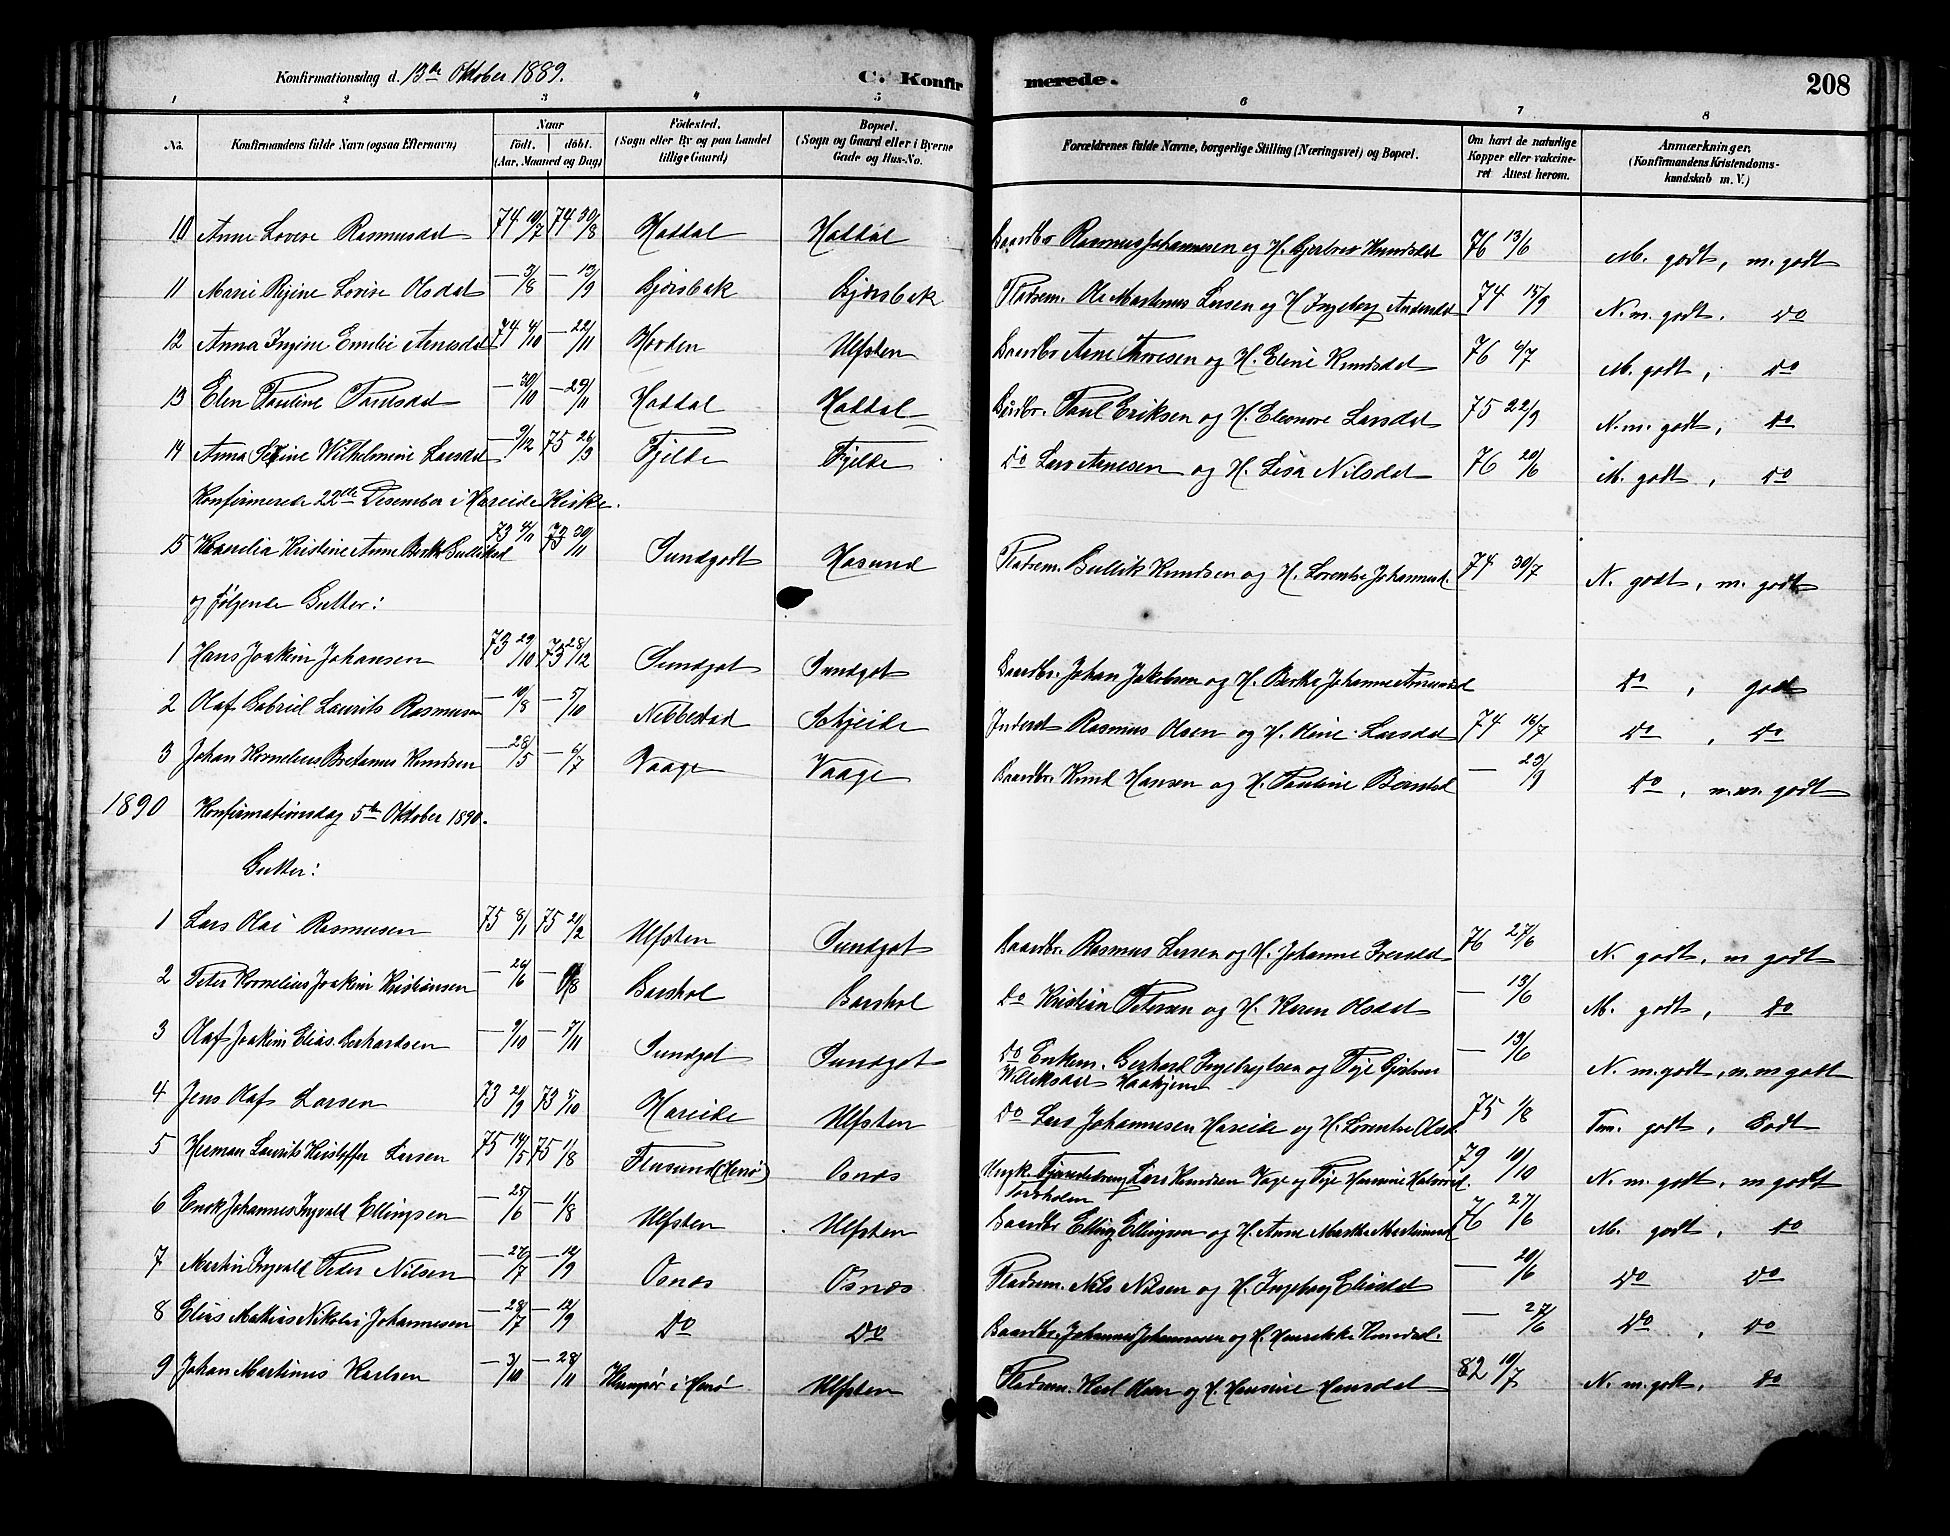 Konfirmationsdag d. 13de Oktober 1889.
C. Konfirmerede.
208
1 2 3 4 5 6 7 8
No. Konfirmandens fulde Navn (ogsaa Efternavn) Naar født. døbt. (Aar, Maaned og Dag) Fødested. (Sogn eller By og paa Landet tillige Gaard) Bopæl. (Sogn og Gaard eller i Byerne Gade og Hus-No. Forældrenes fulde Navne, borgerlige Stilling (Næringsvei) og Bopæl. Om havt de naturlige Kopper eller vakcineret Attest herom. Anmærkninger. (Konfirmandens Kristendomskundskab m. V.)
10 Anne Lovise Rasmusdat 74 10/7 74 30/8 Haddal Haddal Gaardbr Rasmus Johannesen og H. Gjertrud Knudsdat 76 13/6 M. godt, m. godt
11 Marie Regine Lovise Olsdat — 3/8 — 13/9 Bjørsbak Bjørsbak Pladsm. Ole Martinus Larsen og H. Ingeborg Andersd 74 15/9 N. m. godt. Do
12 Anna Ingine Emilie Arnesdat 74 4/10 — 22/11 Hovden Ulfsten Gaardbr Arne Thoresen og H. Eline Knudsdat 76 4/7 M. godt, Do
13 Elen Pauline Paulsdat — 30/10 — 29/11 Haddal Haddal Gaardbr. Paul Eriksen og H. Eleonore Larsdat 75 22/9 N. m. godt, Do
14 Anna Wilhelmine Larsdat — 9/12 75 26/3 Fjelde Fjelde Do Lars Arnesen og H. Lisa Nilsdat 76 20/6 M. godt, Do
Konfirmerede 22de Desember i Hareide Kirke.
15 Kornelia Kristine Anne Berthe Gulliksd 73 4/11 73 30/11 Sundgodt Hasund Pladsm. Gullik Knudsen og H. Lorentse Johannesd. 74 30/7 N. godt, m. godt
og følgende Gutter:
1 Hans Joakim Johansen 73 29/10 73 28/12 Sundgot Sundgot Gaardbr. Johan Jakobsen og H. Berthe Johanne Arnesdat Do, godt
2 Olaf Gabriel Laurits Rasmusen — 10/8 — 5/10 Nebbestad Schjeide Inderst Rasmus Olsen og H. Oline Larsdat 74 16/7 Do, Do
3 Johan Kornelius Bretanus Knudsen — 28/5 — 6/7 Vaage Vaage Gaardbr. Knud Hansen og H. Pauline — 23/9 Do, m. m. godt
1890 Konfirmationsdag 5te Oktober 1890.
Gutter:
1 Lars Olai Rasmusen 75 8/1 75 21/2 Ulfsten Sundgot Gaardbr. Rasmus Larsen og H. Johanne Iversdat 76 27/6 N. godt, m godt
2 Peter Kornelius Joakim Kristiansen — 26/6 — Garshol Garshol Do Kristian Petersen og H. Karen Olsdat — 13/6 M. godt, Do
3 Olaf Joakim Elias Gerhardsen — 9/10 — 7/11 Sundgot Sundgot Do Enkem. Gerhard Ingebregtsen og Pige — 13/6 N. m. godt, m. m godt
4 Jens Olaf Larsen 73 21/9 73 5/10 Hareide Ulfsten Do Lars Johannesen Hareide og H. Lorentse Olsd. 75 1/8 Tm. godt, Godt
5 Herman Laurits Larsen 75 14/5 75 1/8 Flusund (Herø) Osnæs Ungk. Tjenestedreng Lars Knudsen Vage og Pige Hansine Halvorsd. 79 10/10 N. m. godt, m godt
6 Enok Johannes Ingvald Ellingsen — 25/6 — 1/8 Ulfsten Ulfsten Gaardbr Elling Ellingsen og H. Anne Marthe Martinusd 76 27/6 M. godt, Do
7 Martin Ingvald Peder Nilsen — 26/7 — 12/9 Osnæs Osnæs Pladsm. Nils Nilsen og H. Ingeborg Eliasdat — 20/6 Do Do
8 Elias Mathias Nikolai Johannesen — 28/7 — 12/9 Do Do Gaardbr. Johannes Johannesen og H. Henrikke Knudsd. — 27/6 Do, Do
9 Johan Martinus Karlsen — 3/10 — 28/11 i Herø Ulfsten Pladsm. Karl Olsen og H. Hansine Hansdat 82 10/7 N. m. godt. Do